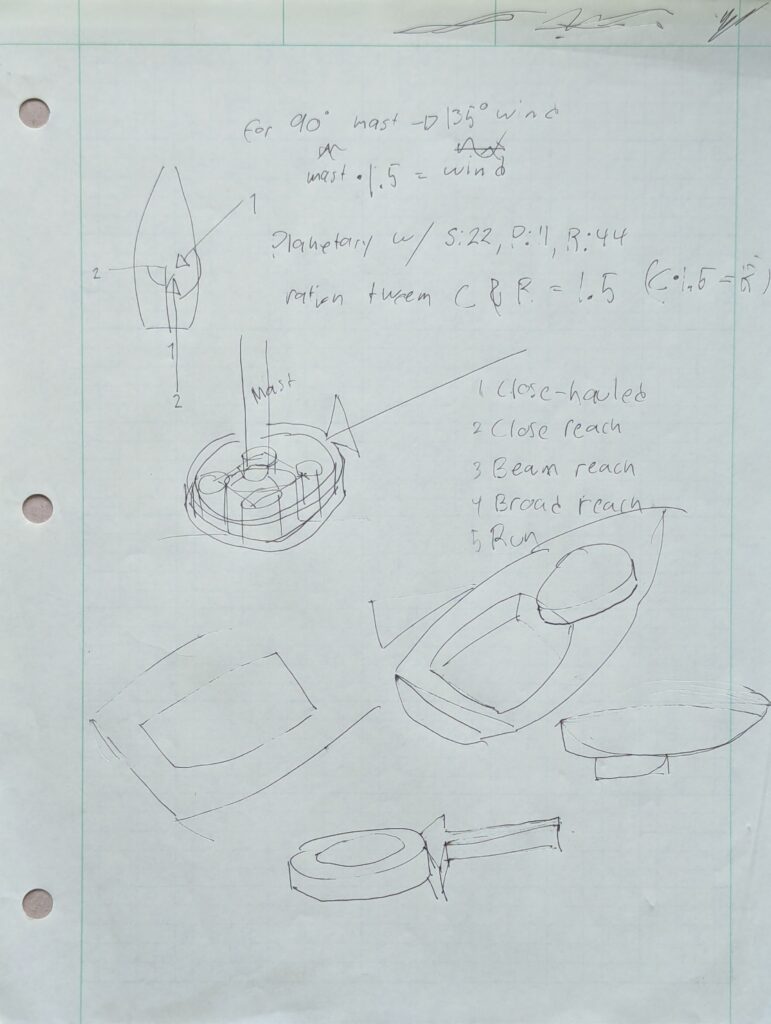 For 90° mast → 135° wind
mast • 1.5 = wind
1
2
1
2
Planetary w/ S:22, P:11, R:44
ration tween C & R = 1.5 (C•1.5=R)
Mast
1 Close-hauled
2 Close reach
3 Beam reach
4 Broad reach
5 Run